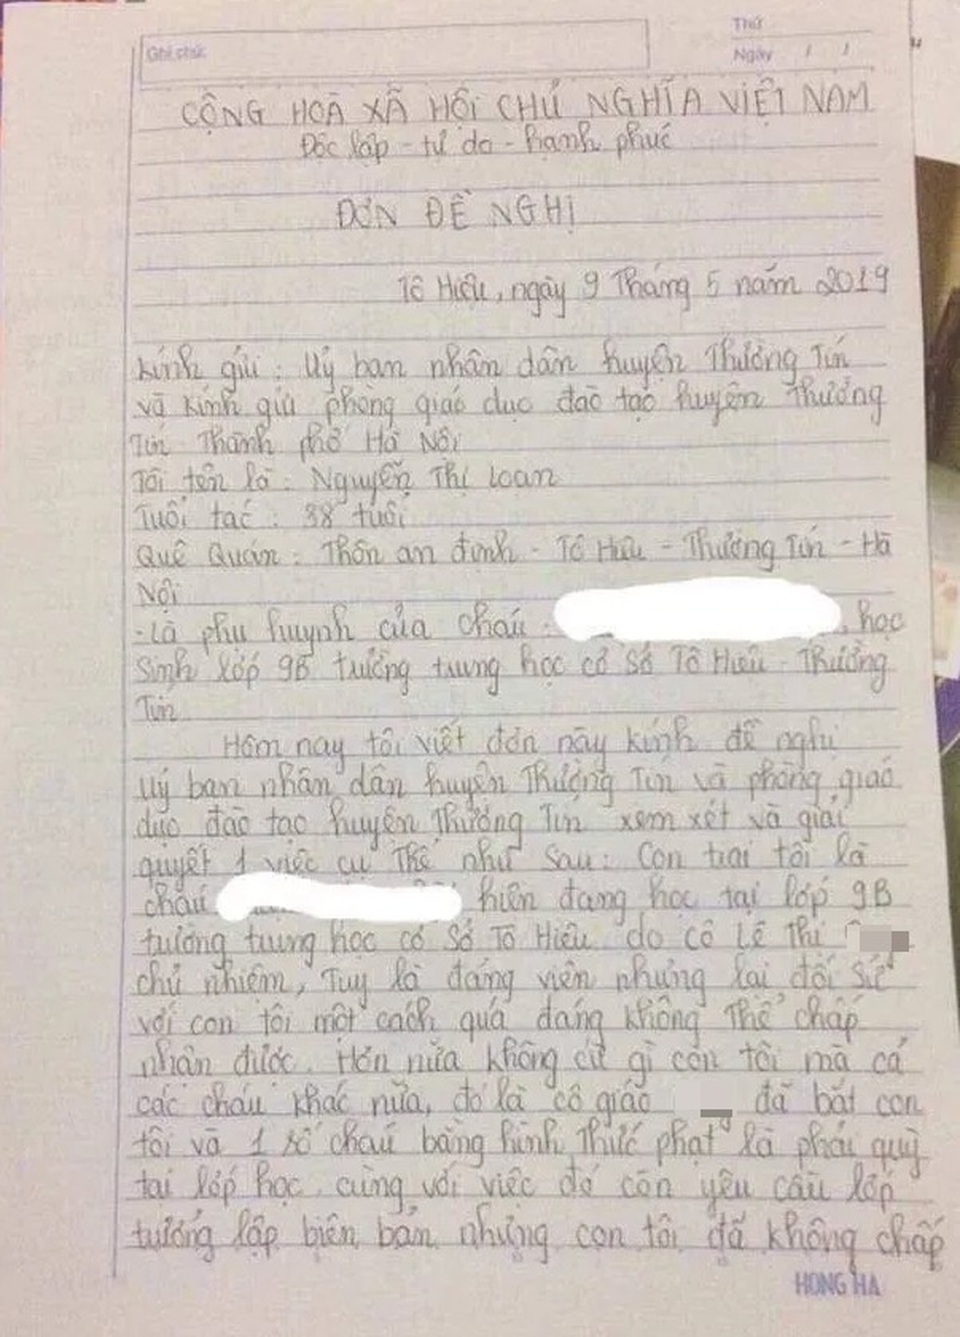 Ghi chú:
Thứ
Ngày / /
CỘNG HOÀ XÃ HỘI CHỦ NGHĨA VIỆT NAM
Độc lập - tự do - hạnh phúc
ĐƠN ĐỀ NGHỊ
Tô Hiệu, ngày 9 Tháng 5 năm 2019
Kính gửi: Uỷ ban nhân dân huyện Thường Tín
và kính gửi phòng giáo dục đào tạo huyện Thường
Tín Thành phố Hà Nội
Tôi tên là: Nguyễn Thị Loan
Tuổi tác: 38 tuổi
Quê Quán: Thôn an định - Tô Hiệu - Thường Tín - Hà
Nội
- Là phụ huynh của cháu: , học
Sinh lớp 9B trường trung học cơ Sở Tô Hiệu - Thường
Tín
Hôm nay tôi viết đơn này kính đề nghị
Uỷ ban nhân dân huyện Thường Tín và phòng giáo
dục đào tạo huyện Thường Tín xem xét và giải
quyết 1 việc cụ Thể như Sau: Con trai tôi là
cháu hiện đang học tại lớp 9B
trường trung học cơ Sở Tô Hiệu do cô Lê Thị
chủ nhiệm, Tuy là đảng viên nhưng lại đối Sử
với con tôi một cách quá đáng không Thể chấp
nhận được. Hơn nữa không cứ gì con tôi mà cả
các cháu khác nữa, đó là cô giáo đã bắt con
tôi và 1 số cháu bằng hình Thức phạt là phải quỳ
tại lớp học, cùng với việc đó còn yêu cầu lớp
trưởng lập biên bản nhưng con tôi đã không chấp
HONG HA